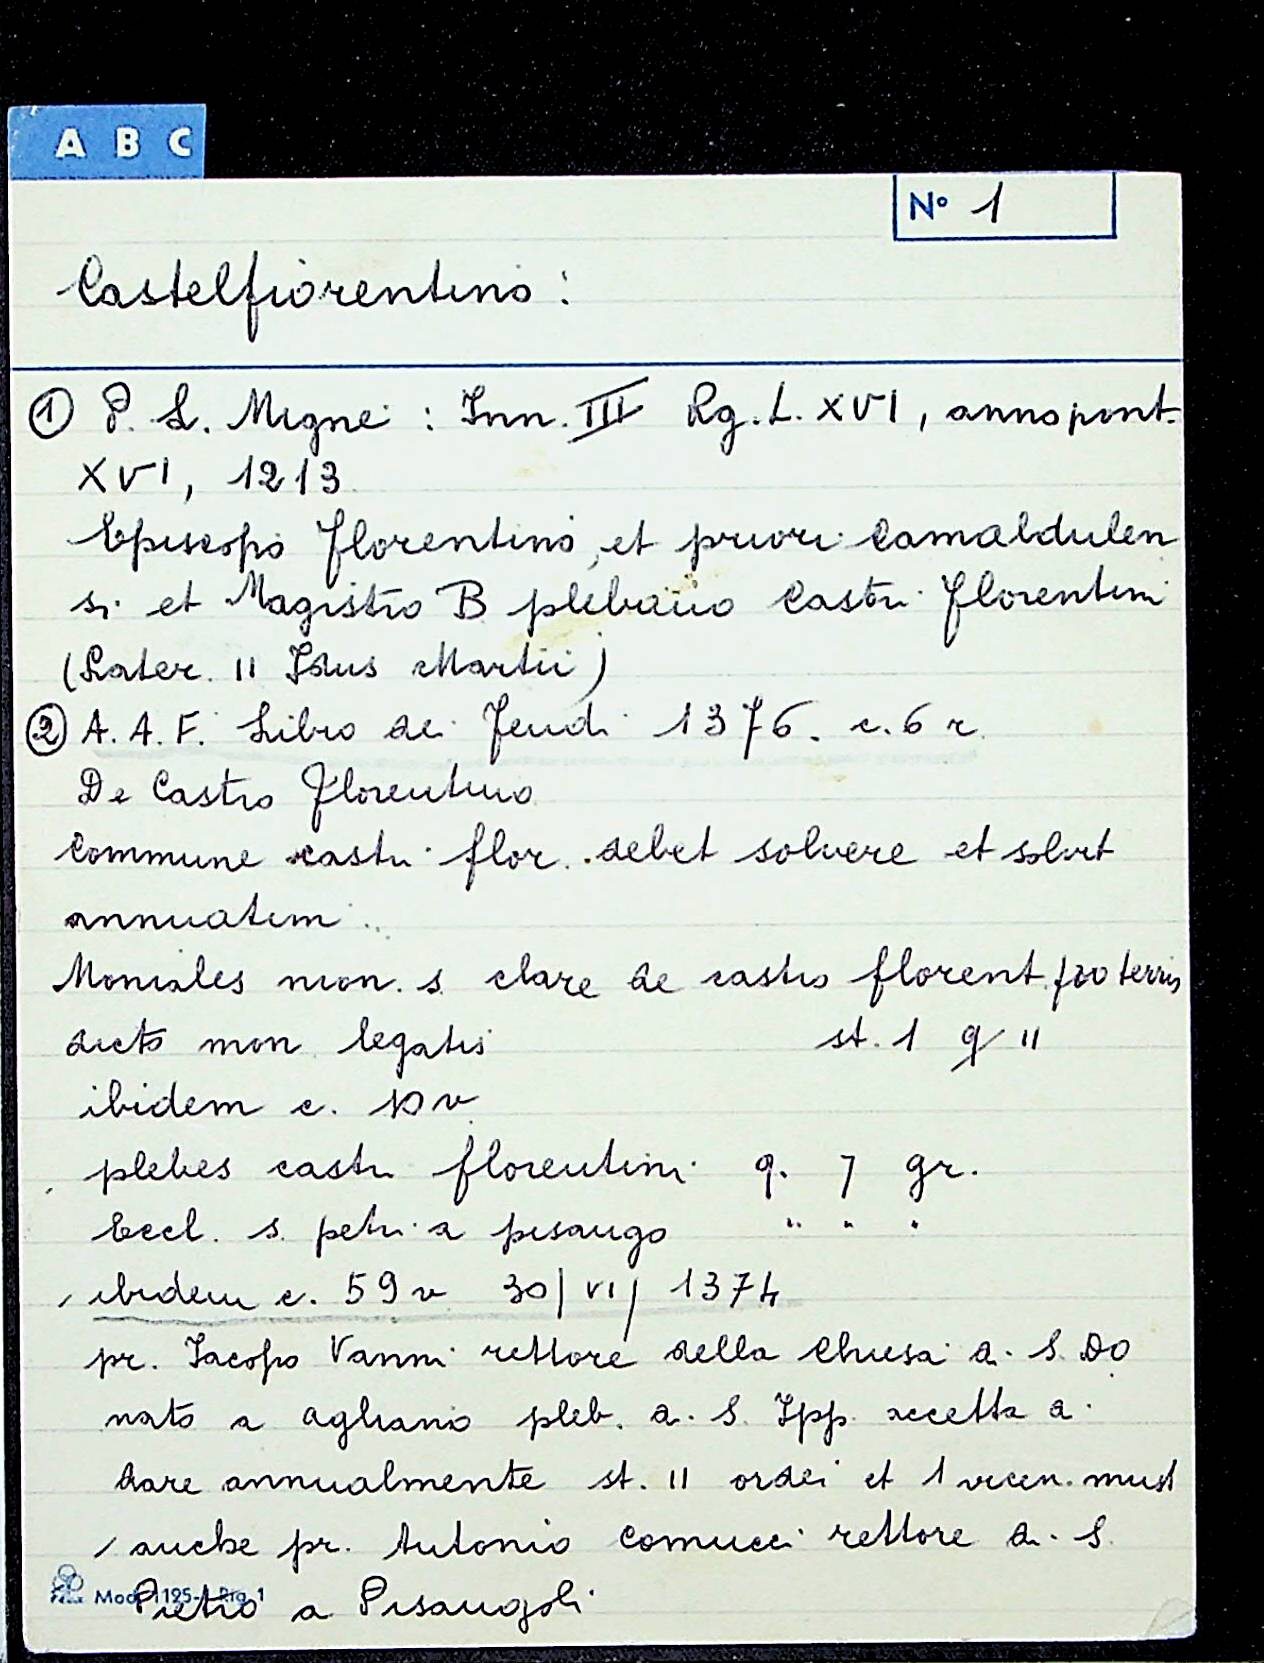 A B C
N° 1
Castelfiorentino :
① P. L. Migne : Inn. III Rg. L. XVI, anno pont.
XVI, 1213
Episcopo florentino, et priori Camaldulen
si et Magistro B plebano Castri florentini
(Later. II Idus Martii)
② A. A. F. Libro dei feudi 1376. c. 6 r.
De Castro florentino
Commune castri flor. debet solvere et solvit
annuatim ..
Moniales mon. s. clare de castro florent. pro terris
dicto mon. legatis st. 1 q II
ibidem c. 10 v
plebes castri florentini q. 7 gr.
Eccl. s. petri a pisango " " "
ibidem c. 59 v 30/VI/1374
pr. Iacopo Vanni rettore della Chiesa di S. Do
nato a Agliano pleb. di S. Ipp. accetta di
dare annualmente st. II ordei et 1 vicen. must
anche pr. Antonio Comucci rettore di S.
Pietro a Pisangoli
Mod. 1125- Rig. 1